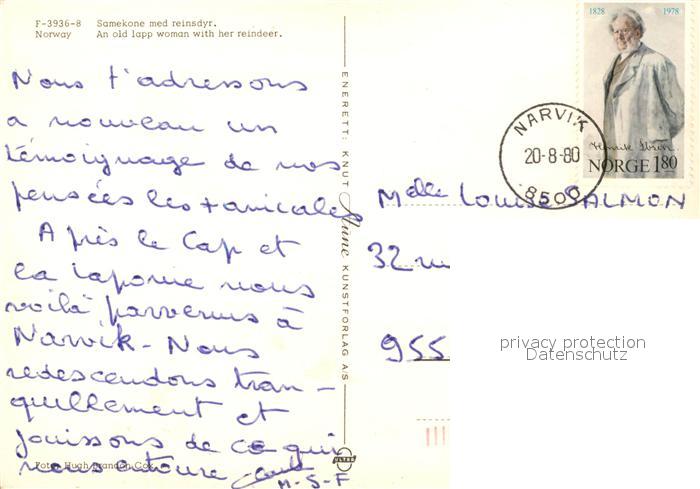 F-3936-8 Samekone med reinsdyr.
Norway An old lapp woman with her reindeer.
Nous t'adressons
a nouveau un
témoignage de nos
pensées les + amicales
Après le Cap et
la Laponie nous
voilà parvenus à
Narvik - Nous
redescendons tran-
quillement et
jouissons de ce qui
nous entoure
M-S-F
Foto: Hugh Brandon Cox
ENERETT: KNUT Aune KUNSTFORLAG A/S
1828 1978
Henrik Ibsen
NORGE 180
NARVIK
20-8-80
8500
Melle Louise SALMON
32
955
privacy protection
Datenschutz